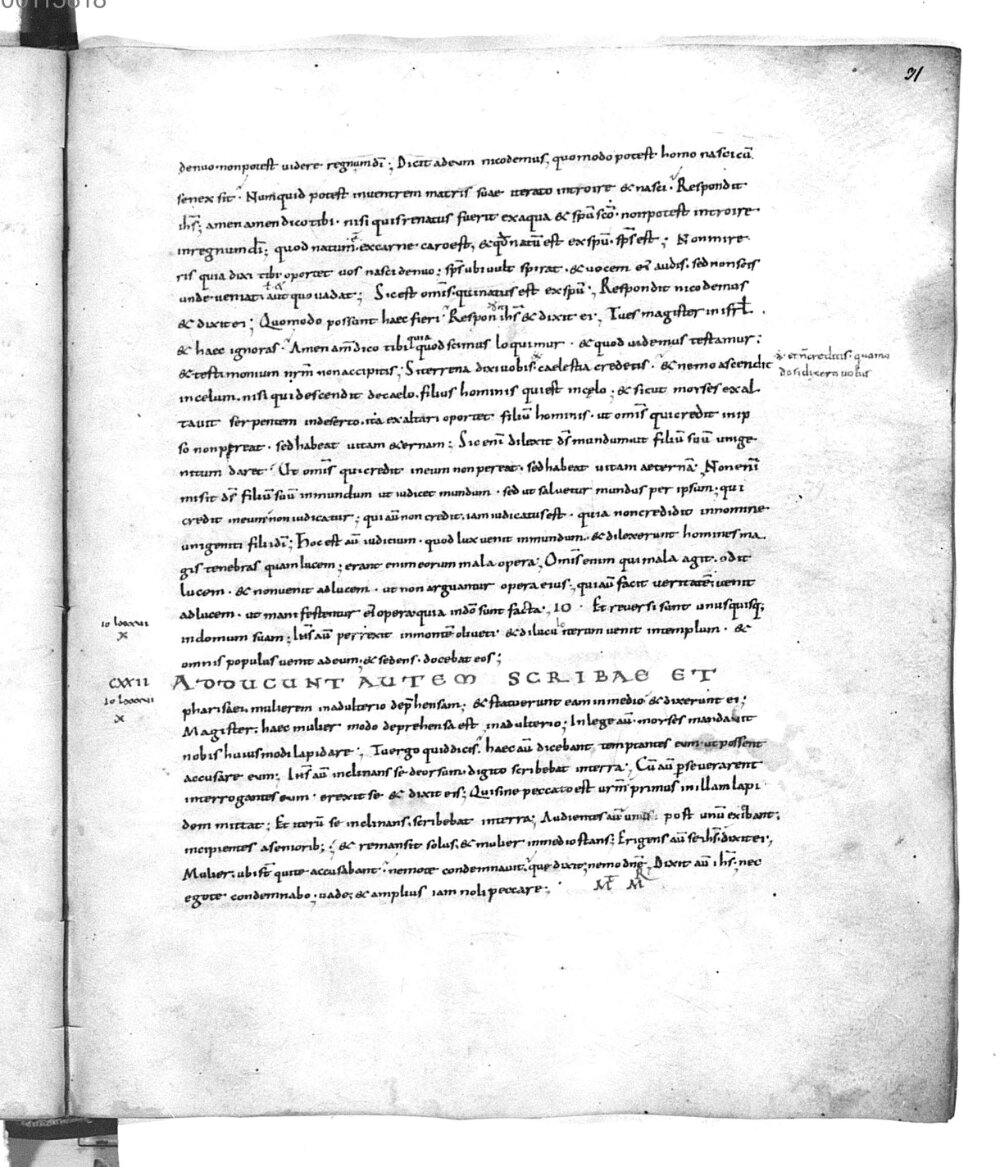 31
denuo. non potest uidere regnum dī; Dicit ad eum nicodemus, quomodo potest homo nasci cū
senex sit. Numquid potest in uentrem matris suae iterato introire & nasci. Respondit
ihs̄; amen amen dico tibi. nisi quis renatus fuerit ex aqua & spū scō. non potest introire
in regnum dī; quod natum ē ex carne caro est, & qđ natū est ex spū. sps̄ est; Non mire
ris quia dixi tibi oportet uos nasci denuo; sps̄ ubi uult spirat. & uocem eī audis. sed non scis
unde ueniat aut quo uadat; Sic est omīs. qui natus est ex spū; Respondit nicodemus
& dixit ei; Quomodo possunt haec fieri. Respon ihs̄ & dixit ei, Tu es magister in isrl̄.
& haec ignoras. Amen am̄ dico tibi quia quod scimus loquimur. & quod uidemus testamur;
& testimonium nrm̄ non accipitis; Si terrena dixi uobis. caelestia credetis. & nemo ascendit
& n̄ creditis. quomo
do si dixero uobis
in celum. nisi qui descendit de caelo. filius hominis qui est in cęlo; & sicut moyses exal
tauit serpentem in deserto. ita exaltari oportet filiū hominis. ut omīs qui credit in ip
so non pereat. sed habeat uitam &ernam; Sic enī dilexit dš mundum ut filiū suū unige
nitum daret. Ut omīs qui credit in eum non pereat. sed habeat uitam aeternā; Non enī
misit dš filiū suū in mundum ut iudicet mundum. sed ut saluetur mundus per ipsum; qui
credit in eum non iudicatur; qui aū non credit. iam iudicatus est. quia non credidit in nomine
unigeniti filii dī; Hoc est aū iudicium. quod lux uenit in mundum. & dilexerunt homines ma
gis tenebras quam lucem; erant enim eorum mala opera; Omīs enim qui mala agit. odit
lucem. & non uenit ad lucem. ut non arguantur opera eius; qui aū facit ueritatem uenit
ad lucem. ut manifestentur eī opera. quia in dō sunt facta; IO. Et reuersi sunt unusquisq;
io lxxxvi
x
in domum suam; Ihs̄ aū perrexit in montem oliueti & dilucu lo iterum uenit in templum. &
omnis populus uenit ad eum; & sedens. docebat eos;
CXXII ADDUCUNT AUTEM SCRIBAE ET
io lxxxvi
x
pharisaei mulierem in adulterio dep̄hensam; & statuerunt eam in medio & dixerunt ei;
Magister. haec mulier modo deprehensa est in adulterio; In lege aū. moyses mandauit
nobis huiusmodi lapidare; Tu ergo quid dicis. haec aū dicebant temptantes eum ut possent
accusare eum; Ihs̄ aū inclinans se deorsum. digito scribebat in terra; Cū aū p̄seuerarent
interrogantes eum. erexit se & dixit eis; Qui sine peccato est urm̄ primus in illam lapi
dem mittat; Et iterū se inclinans. scribebat in terra; Audientes aū unus post unū exibant;
incipientes a seniorib; & remansit solus, & mulier in medio stans; Erigens aū se ihs̄. dixit ei,
Mulier. ubi sū̄t qui te accusabant. nemo te condemnauit. que dixit; nemo dnē; Dixit aū ihs̄; nec
ego te condemnabo; uade; & amplius iam noli peccare;